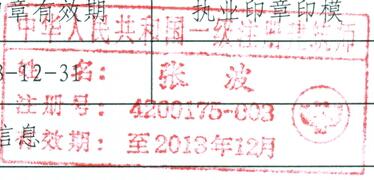 章有效期 执业印章印模
中华人民共和国一级注册建筑师
-12-31
姓 名: 张 波
注册号: 4200175-003
信息
有效期: 至2013年12月